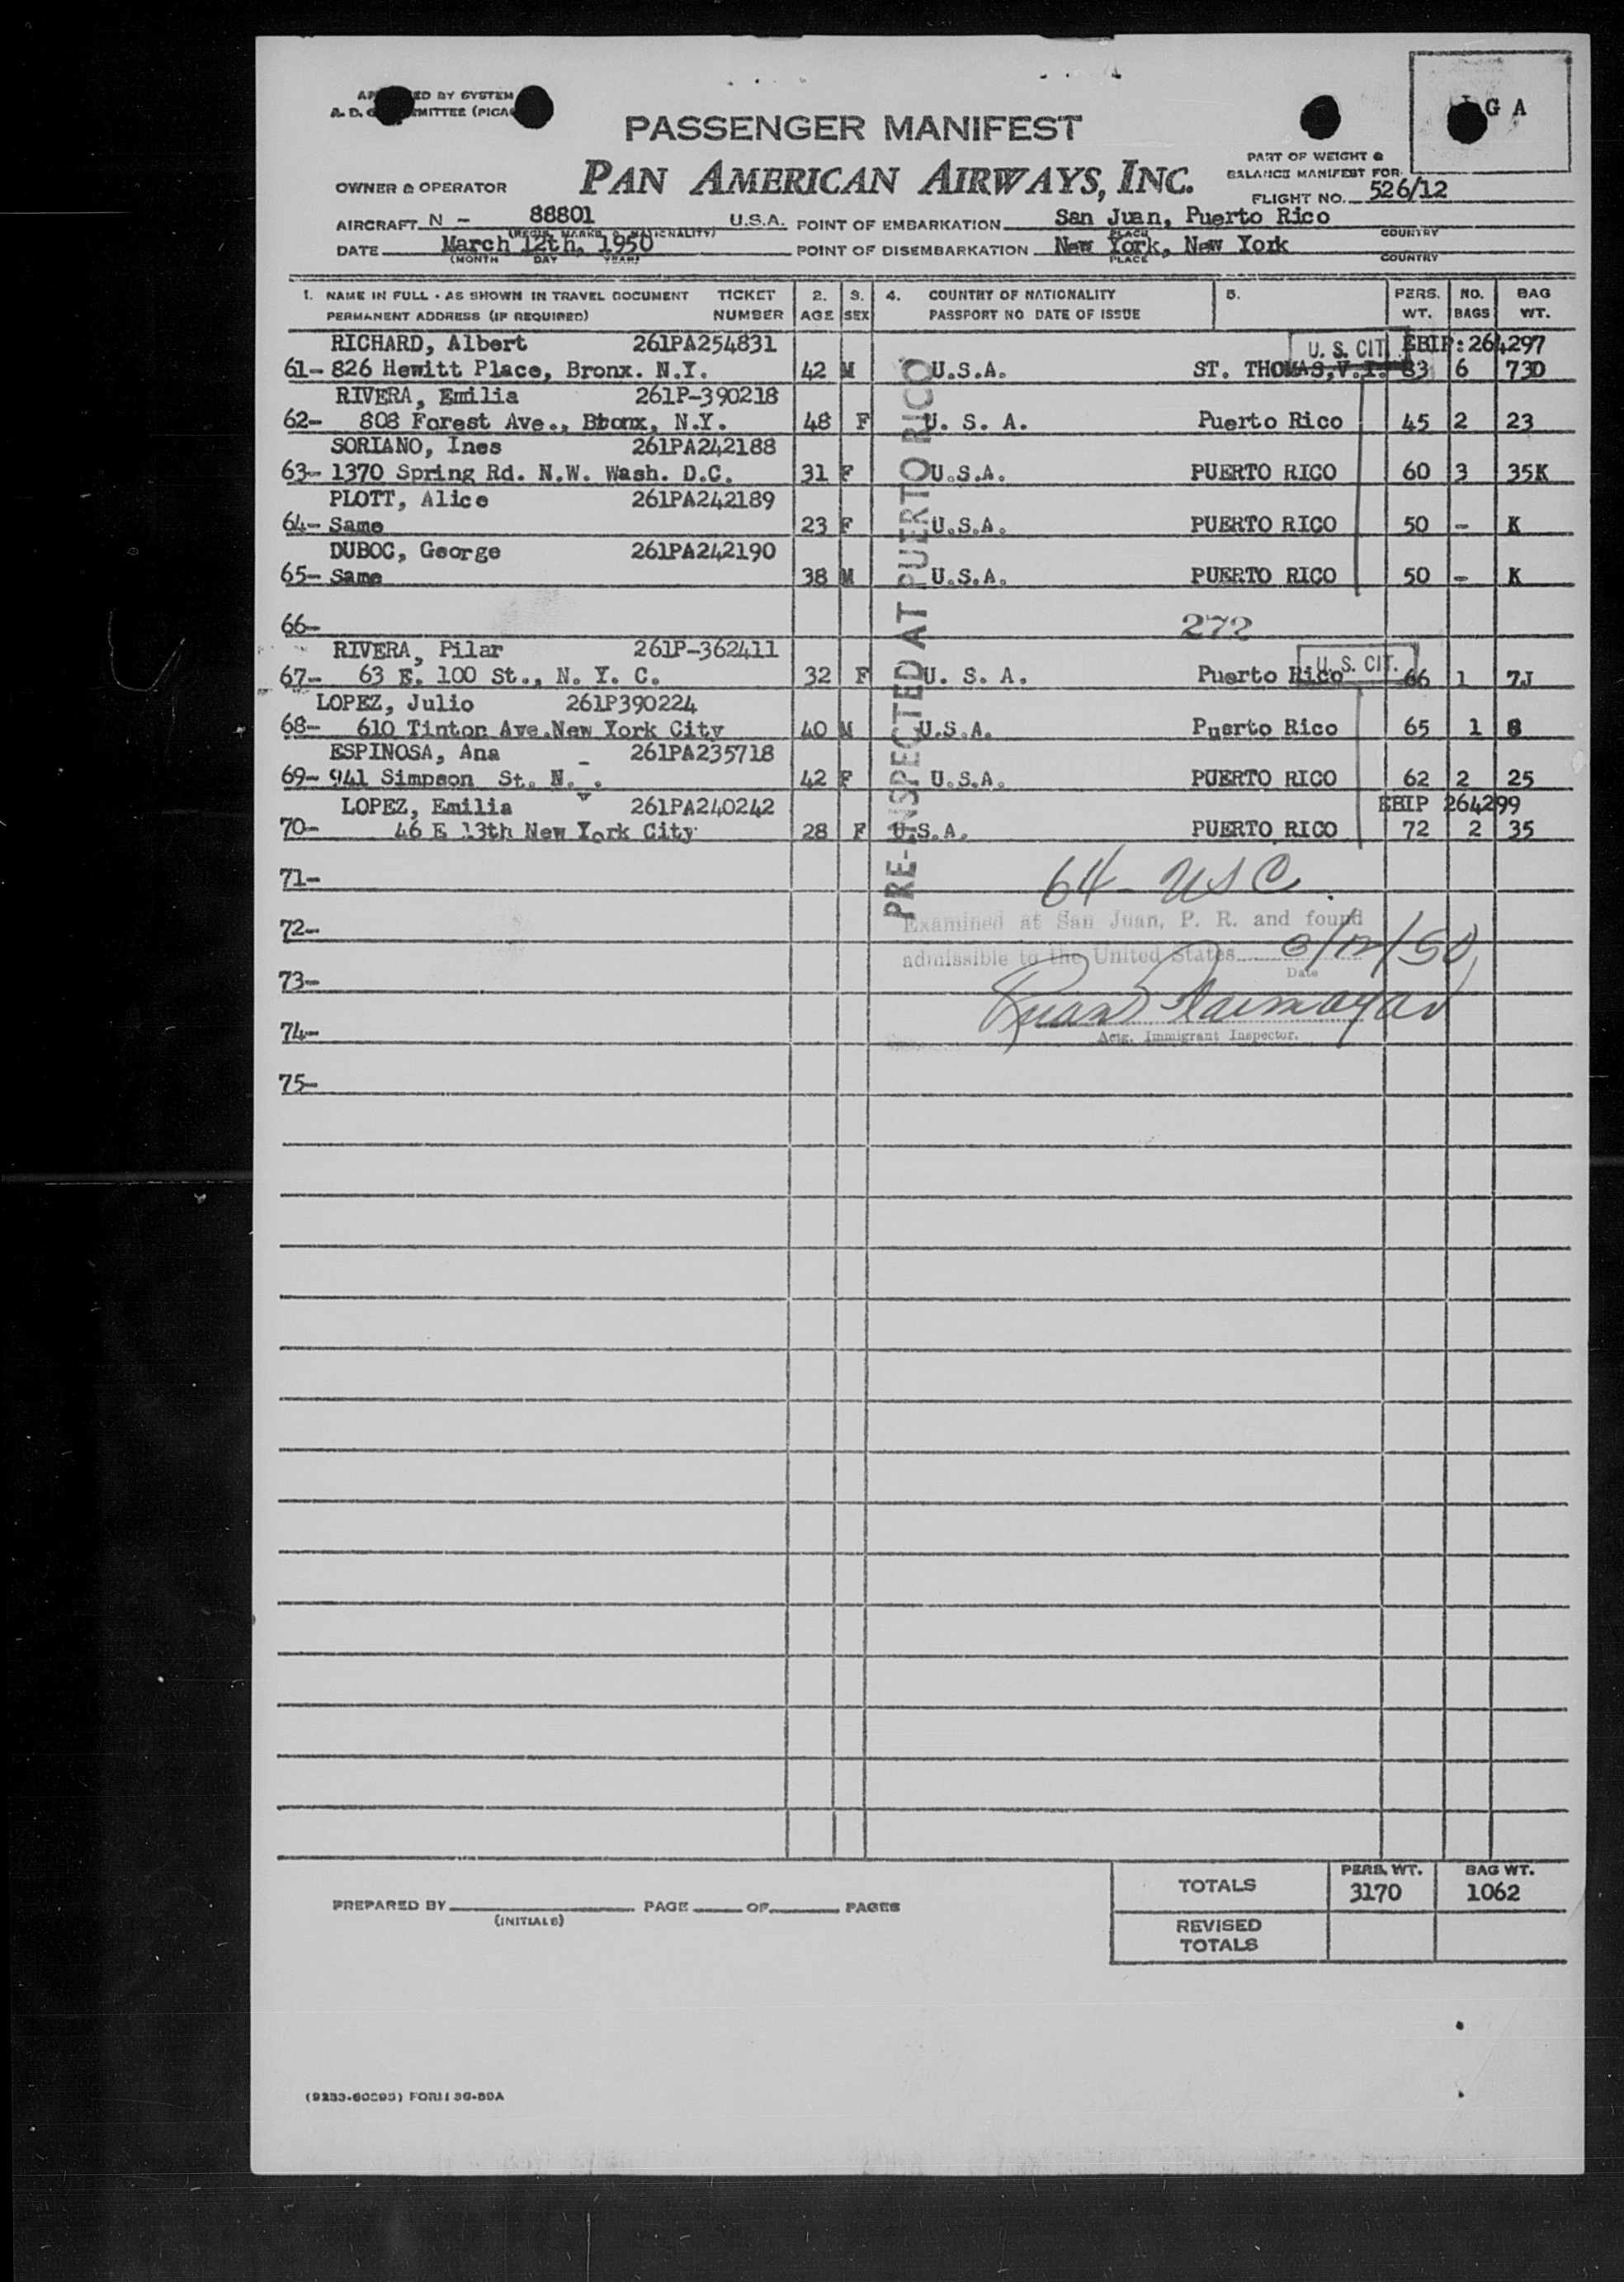 PASSENGER MANIFEST
G A
OWNER & OPERATOR
PAN AMERICAN AIRWAYS, INC.
PART OF WEIGHT &
BALANCE MANIFEST FOR
FLIGHT NO. 526/12
AIRCRAFT N - 88801 U.S.A. POINT OF EMBARKATION San Juan, Puerto Rico
PLACE COUNTRY
DATE March 12th, 1950 POINT OF DISEMBARKATION New York, New York
(MONTH DAY YEAR) PLACE COUNTRY
1. NAME IN FULL - AS SHOWN IN TRAVEL DOCUMENT TICKET 2. 3. 4. COUNTRY OF NATIONALITY 5. PERS. NO. BAG
PERMANENT ADDRESS (IF REQUIRED) NUMBER AGE SEX PASSPORT NO DATE OF ISSUE WT. BAGS WT.
RICHARD, Albert 261PA254831 U. S. CIT. EBIP:264297
61- 826 Hewitt Place, Bronx. N.Y. 42 M U.S.A. ST. THOMAS,V.I. 83 6 73D
RIVERA, Emilia 261P-390218
62- 808 Forest Ave., Bronx, N.Y. 48 F U. S. A. Puerto Rico 45 2 23
SORIANO, Ines 261PA242188
63- 1370 Spring Rd. N.W. Wash. D.C. 31 F U.S.A. PUERTO RICO 60 3 35K
PLOTT, Alice 261PA242189
64- Same 23 F U.S.A. PUERTO RICO 50 - K
DUBOC, George 261PA242190
65- Same 38 M U.S.A. PUERTO RICO 50 - K
66- 272
RIVERA, Pilar 261P-362411 U. S. CIT.
67- 63 E. 100 St., N. Y. C. 32 F U. S. A. Puerto Rico 66 1 7J
LOPEZ, Julio 261P390224
68- 610 Tinton Ave.New York City 40 M U.S.A. Puerto Rico 65 1 8
ESPINOSA, Ana 261PA235718
69- 941 Simpson St. N. . 42 F U.S.A. PUERTO RICO 62 2 25
LOPEZ, Emilia 261PA240242 EBIP 264299
70- 46 E 13th New York City 28 F U.S.A. PUERTO RICO 72 2 35
PRE-INSPECTED AT PUERTO RICO
71- 64 - USC
72- Examined at San Juan, P. R. and found
admissible to the United States 3/12/50
Date
73-
74- Actg. Immigrant Inspector.
75-
PERS. WT. BAG WT.
TOTALS 3170 1062
PREPARED BY PAGE OF PAGES
(INITIALS)
REVISED
TOTALS